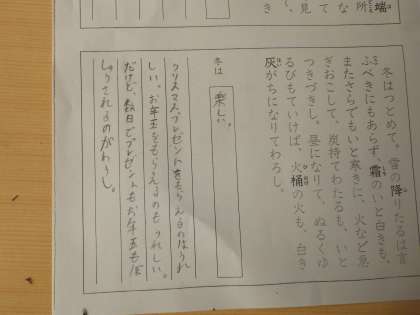 端
所
冬はつとめて。雪の降りたるは言
ふべきにもあらず、霜のいと白きも、
またさらでもいと寒きに、火など急
ぎおこして、炭持てわたるも、いと
つきづきし。昼になりて、ぬるくゆ
るびもていけば、火桶の火も、白き
灰がちになりてわろし。
冬は
楽しい。
クリスマスプレゼントをもらえるのはうれ
しい。お年玉をもらえるのもうれしい。
だけど、数日でプレゼントもお年玉も